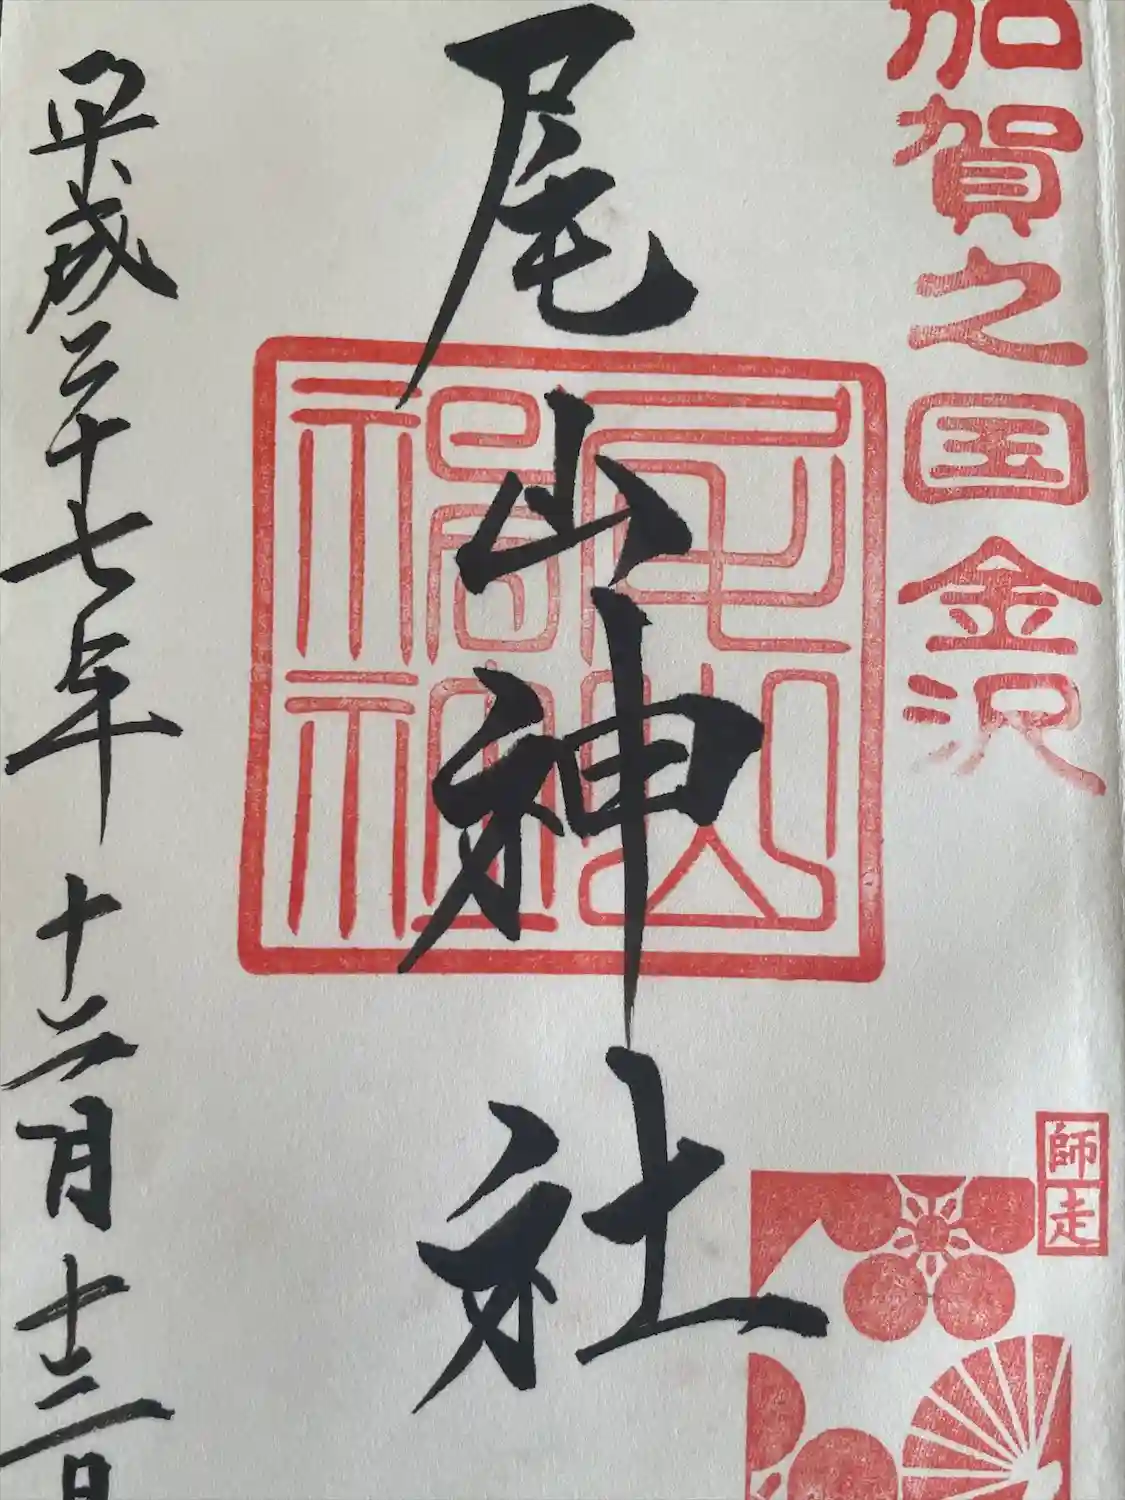 加賀之国金沢
師走
尾山神社
尾山
神社
平成二十七年十二月十三日